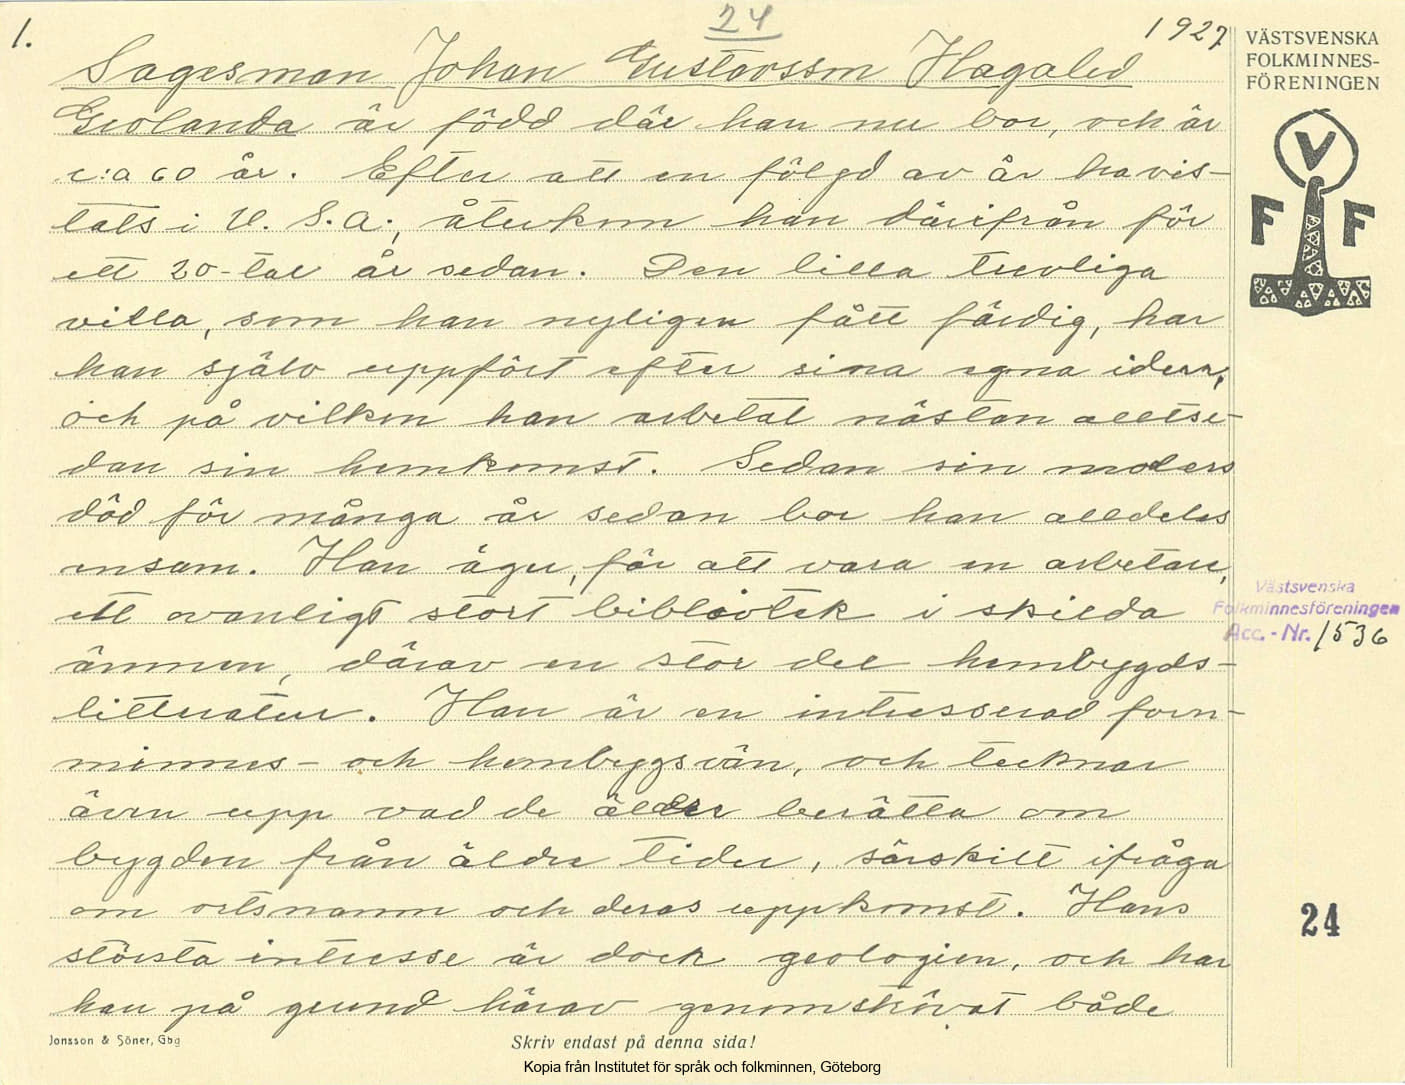 1.
24
1927
Sagesman Johan Gustavsson Hagalid
Grolanda är född där han nu bor, och är
c:a 60 år. Efter att en följd av år ha vis-
tats i U. S. A., återkom han därifrån för
ett 20-tal år sedan. Den lilla trevliga
villa, som han nyligen fått färdig, har
han själv uppfört efter sina egna ideer,
och på vilken han arbetat nästan alltse-
dan sin hemkomst. Sedan sin moders
död för många år sedan bor han alldeles
ensam. Han äger, för att vara en arbetare,
ett ovanligt stort bibliotek i skilda
ämnen, därav en stor del hembygds-
litteratur. Han är en intresserad forn-
minnes- och hembygsvän, och tecknar
även upp vad de äldre berätta om
bygden från äldre tider, särskilt ifråga
om ortsnamn och deras uppkomst. Hans
största intresse är dock geologien, och har
han på grund härav genomströvat både
VÄSTSVENSKA
FOLKMINNES-
FÖRENINGEN
V
F F
Västsvenska
Folkminnesföreningen
Acc. - Nr. 1536
24
Jonsson & Söner, Gbg
Skriv endast på denna sida!
Kopia från Institutet för språk och folkminnen, Göteborg